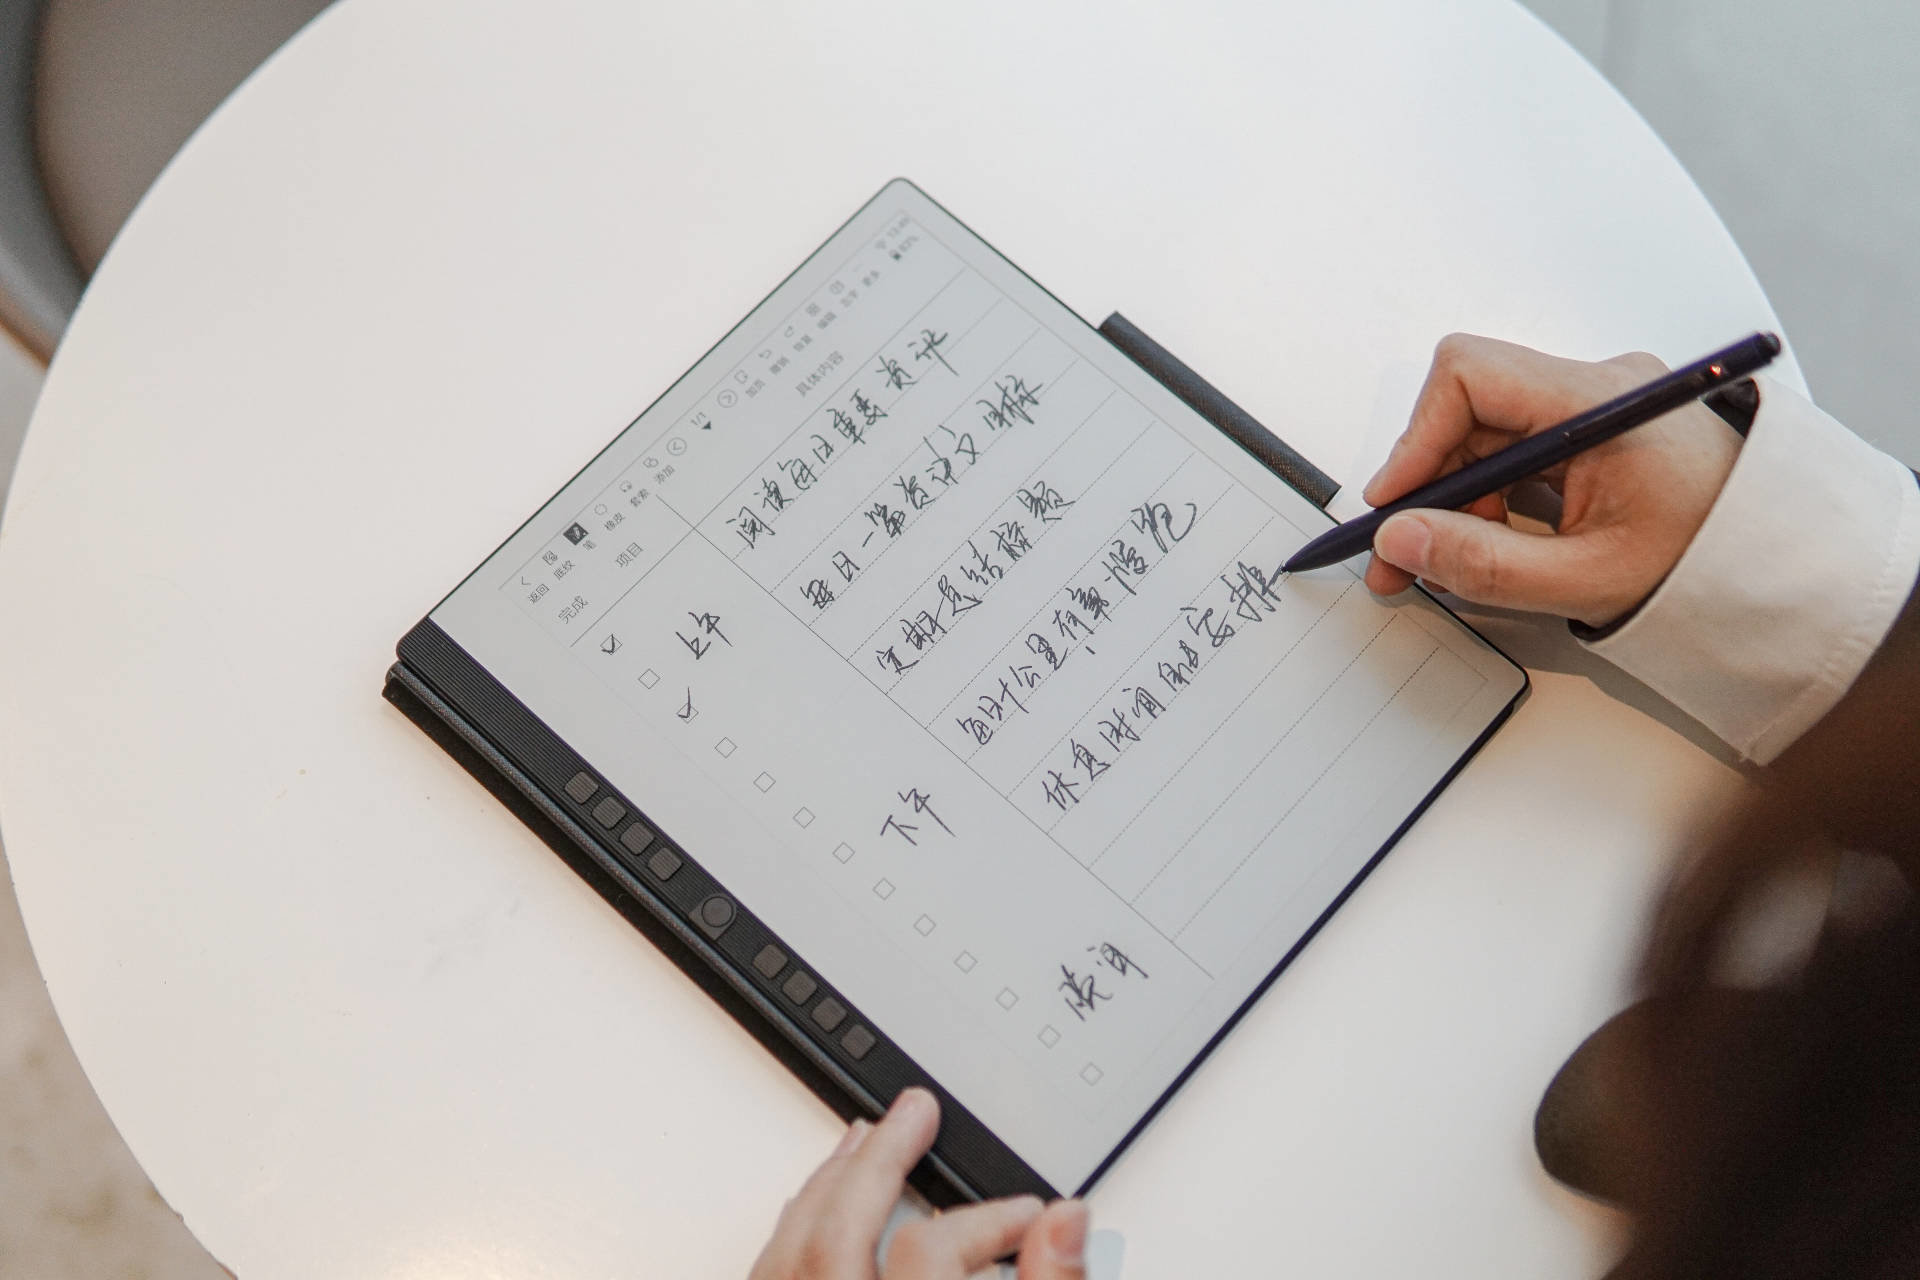 13:46
82%
返回 底纹 笔 橡皮 套索 添加 1/1 加页 撤销 恢复 编辑 全字 更多
完成 项目 具体内容
上午 阅读每日重要资讯
每日一篇资讯文
定期总结标题
下午 每日十公里有氧慢跑
休息时间自由安排